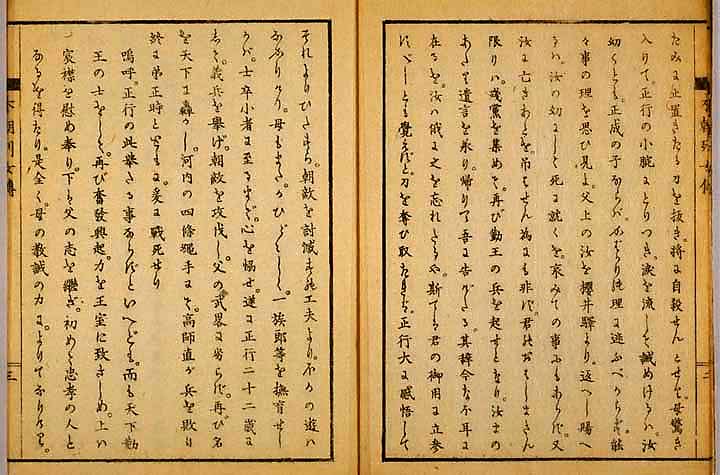 たみに止置きたる刀を抜き。将に自殺せんとせしを。母驚き
入りて。正行の小腕にとりつき。涙を流して誡めけるハ。汝
幼くとも。正成の子ならバ。かばかりの理に迷ふべからず。能
々事の理を思ひ見よ。父上の汝を櫻井驛より。返へし賜へ
るハ。汝の幼にして死に就くを。哀みての事にもあらず。又
汝に亡きあとを吊はせん為にも非ず。君のおはしまさん
限りハ。残黨を集めて。再び勤王の兵を起せとなり。汝まの
あたり遺言を承り。帰りて吾に告げたる。其詞今なほ耳に
在るを。汝ハ之を忘れたるや。斯てハ君の御用に立参
すべしとも覺えずと。刀を奪ひ取たりき。正行大に感悟して
二
それよりひたすら。朝敵を討滅する工夫より。ホかの遊ハ
なかりけり。母もまた。かひ〴〵しく。一族郎等を撫育せし
かバ。士卒小者に至るまで。心を傾せ。遂に正行二十二歳に
して。義兵を擧げ。朝敵を攻伐し。父の武畧に劣らず。再び名
を天下に轟かし。河内の四條畷手にて。高師直が兵を敗り
終に弟正時とともに。爰に戰死せり
嗚呼。正行の此擧ある事ならずといへども。而も天下勤
王の士をして。再び奮發興起。力を王室に致さしめ。上ハ
宸襟を慰め奉り。下も父の志を繼ぎ。初めて忠孝の人と
なるを得たり。是全く。母の教誡の力に。よりてなりけり。
本朝列女傳
三